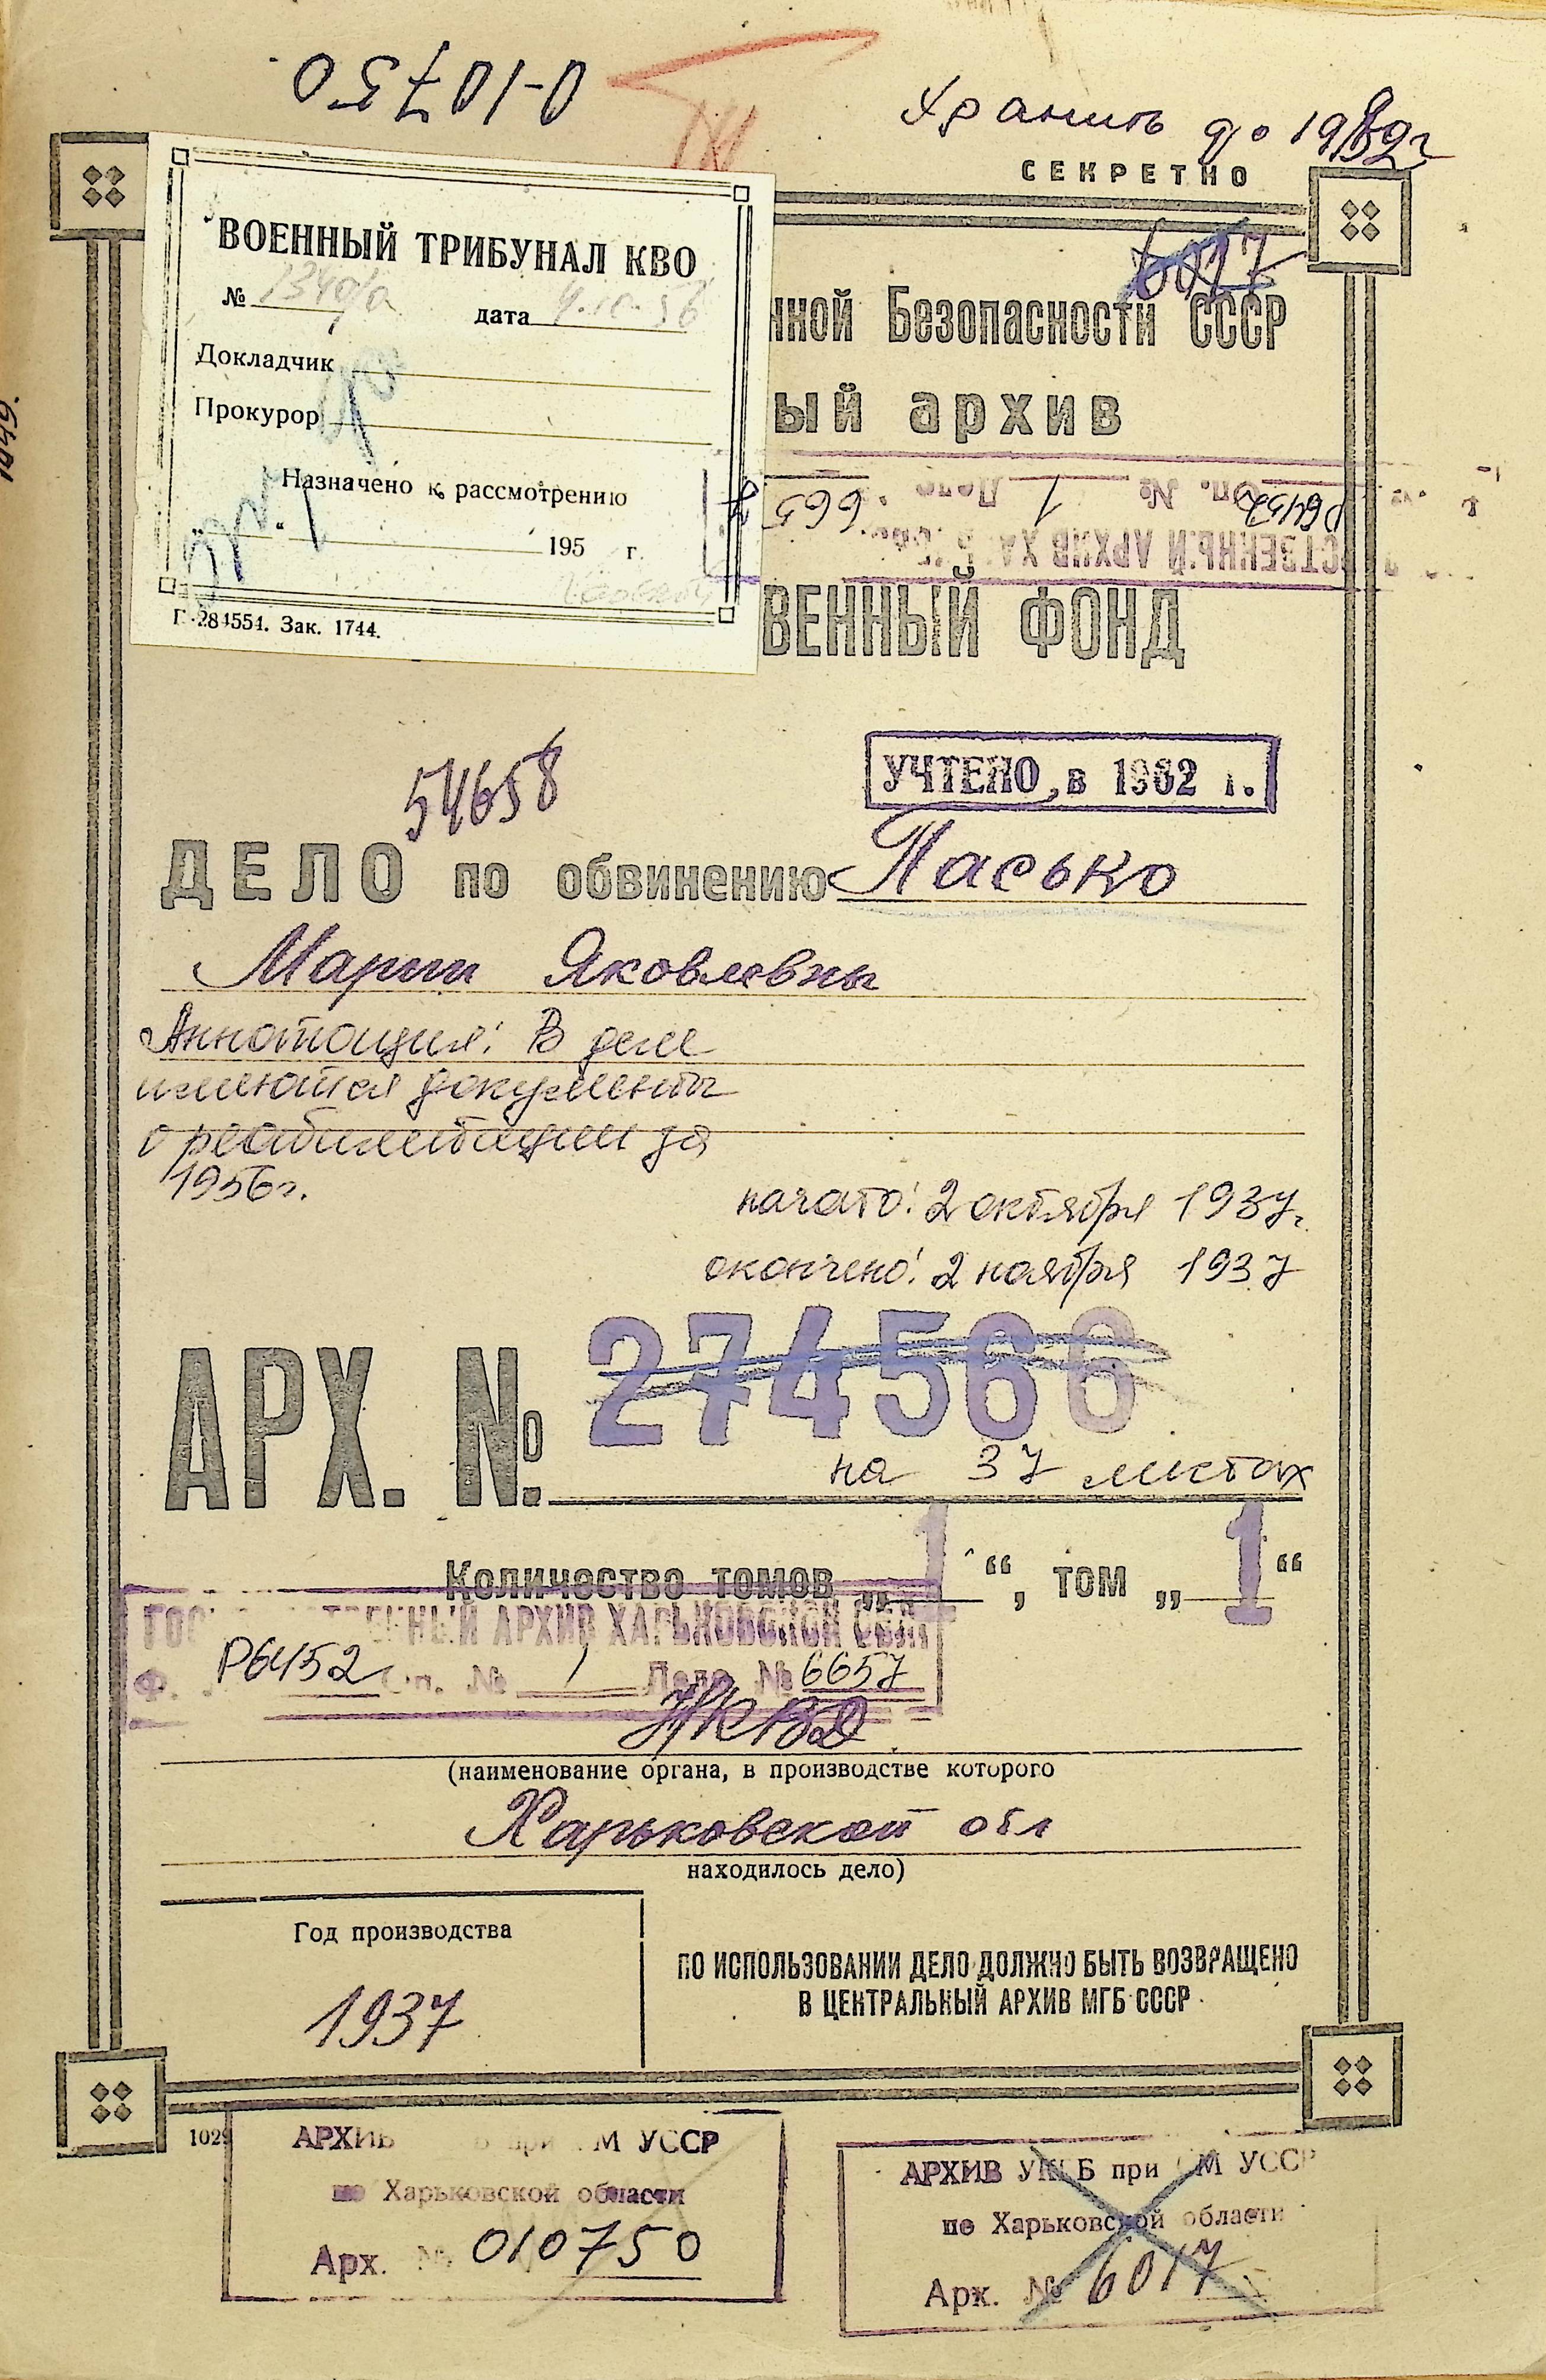 0-10750
Хранить до 1989г
СЕКРЕТНО
6017
ВОЕННЫЙ ТРИБУНАЛ КВО
№ дата 4.10.56
Докладчик
Прокурор
Назначено к рассмотрению
195 г.
Зак. 1744.
нной Безопасности СССР
ый архив
Р6452 Оп. № 1 Дело 665
СТВЕННЫЙ АРХИВ ХА
ВЕННЫЙ ФОНД
54658
УЧТЕНО в 1962 г.
ДЕЛО по обвинению Пасько
Марии Яковлевны
Аннотация: В деле
имеются документы
о реабилитации за
1956г.
начато: 2 октября 1937г.
окончено: 2 ноября 1937
АРХ. № 274566
на 37 листах
Количество томов „1“, том „1“
ГОС ТВЕННЫЙ АРХИВ ХАРЬКОВСКОЙ ОБЛ
Ф. Р6452 Оп. № 1 Дело № 6657
НКВД
(наименование органа, в производстве которого
Харьковской обл
находилось дело)
Год производства
1937
ПО ИСПОЛЬЗОВАНИИ ДЕЛО ДОЛЖНО БЫТЬ ВОЗВРАЩЕНО
В ЦЕНТРАЛЬНЫЙ АРХИВ МГБ СССР
АРХИВ при М УССР
по Харьковской области
Арх. № 010750
АРХИВ УКГБ при СМ УССР
по Харьковской области
Арх. № 6017